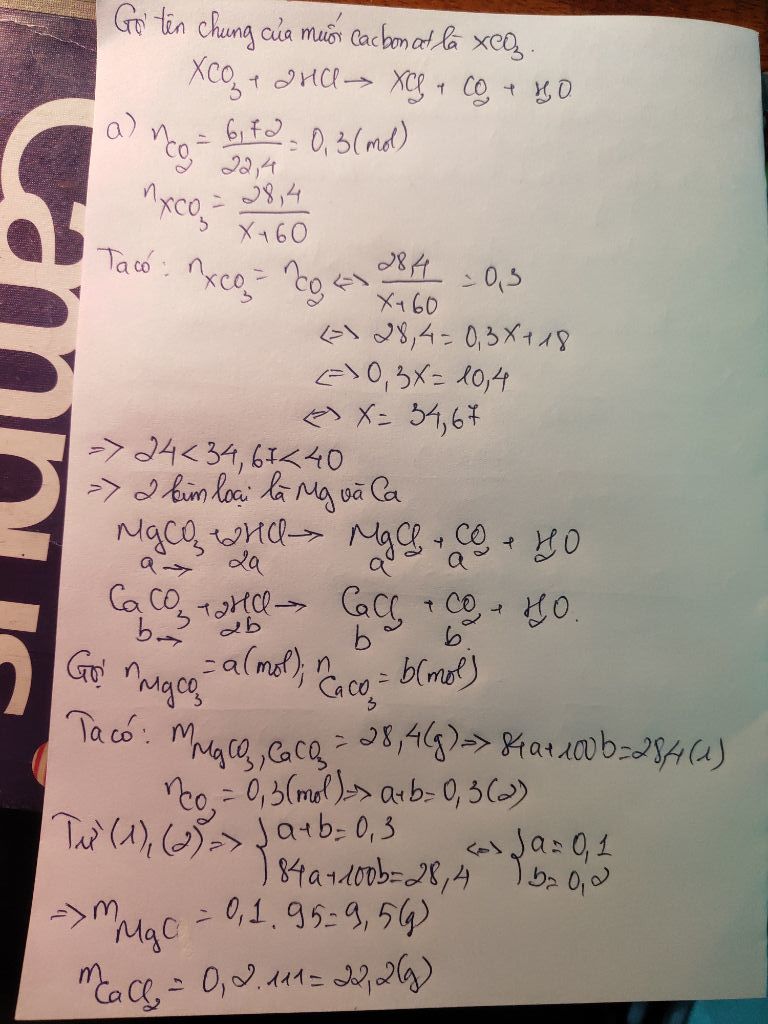 Campus
Gọi tên chung của muối cacbonat là XCO₃.
XCO₃ + 2HCl → XCl₂ + CO₂ + H₂O
a) nCO₂ = 6,72/22,4 = 0,3(mol)
nXCO₃ = 28,4/X+60
Ta có: nXCO₃ = nCO₂ <=> 28,4/X+60 = 0,3
<=> 28,4 = 0,3X+18
<=> 0,3X = 10,4
<=> X = 34,67
=> 24<34,67<40
=> 2 kim loại là Mg và Ca
MgCO₃ + 2HCl → MgCl₂ + CO₂ + H₂O
a → 2a a a
CaCO₃ + 2HCl → CaCl₂ + CO₂ + H₂O.
b → 2b b b.
Gọi nMgCO₃ = a(mol); nCaCO₃ = b(mol)
Ta có: mMgCO₃,CaCO₃ = 28,4(g) => 84a+100b=28,4(1)
nCO₂ = 0,3(mol) => a+b=0,3(2)
Từ (1),(2) => { a+b=0,3 <=> { a=0,1
84a+100b=28,4 b=0,2
=> mMgC = 0,1.95=9,5(g)
mCaCl₂ = 0,2.111=22,2(g)